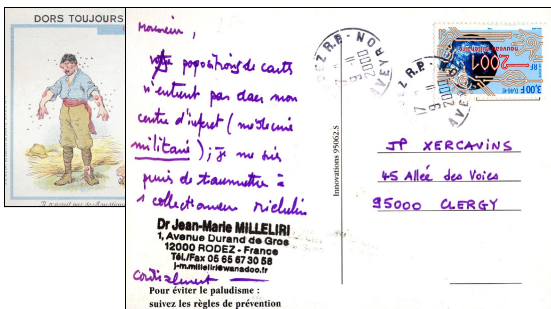 DORS TOUJOURS
Monsieur,
vos propositions de carts
n'entrent pas dans mon
centre d'intérêt (médecine
militaire); je me suis
permis de transmettre à
1 collectionneur Michelin
Dr Jean-Marie MILLELIRI
1, Avenue Durand de Gros
12000 RODEZ - France
Tél./Fax 05 65 67 30 58
j-m.milleliri@wanadoo.fr
Cordialement
Pour éviter le paludisme :
suivez les règles de prévention
Innovations 95062.S
RODEZ R.P. - AVEYRON
2001
3,00F 0,46€
RF
nouveau millénaire
JP XERCAVINS
45 Allée des Voies
95000 CLERGY